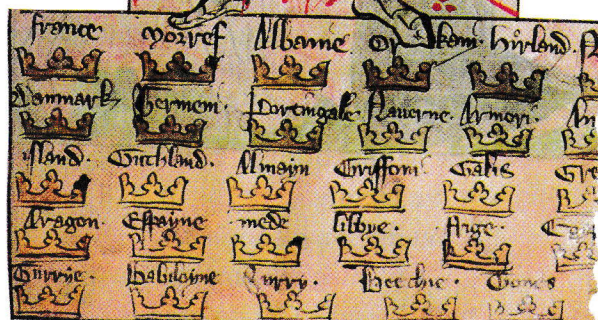 france norref Albanie Or kani. hirland.
Danmark hermeni. Portingale Nauerne. Armori.
ysland. Guthland. Almayn Griffoni Galis Gre
Aragon. Espayne mede libbye. frige.
Surrye. Babiloyne